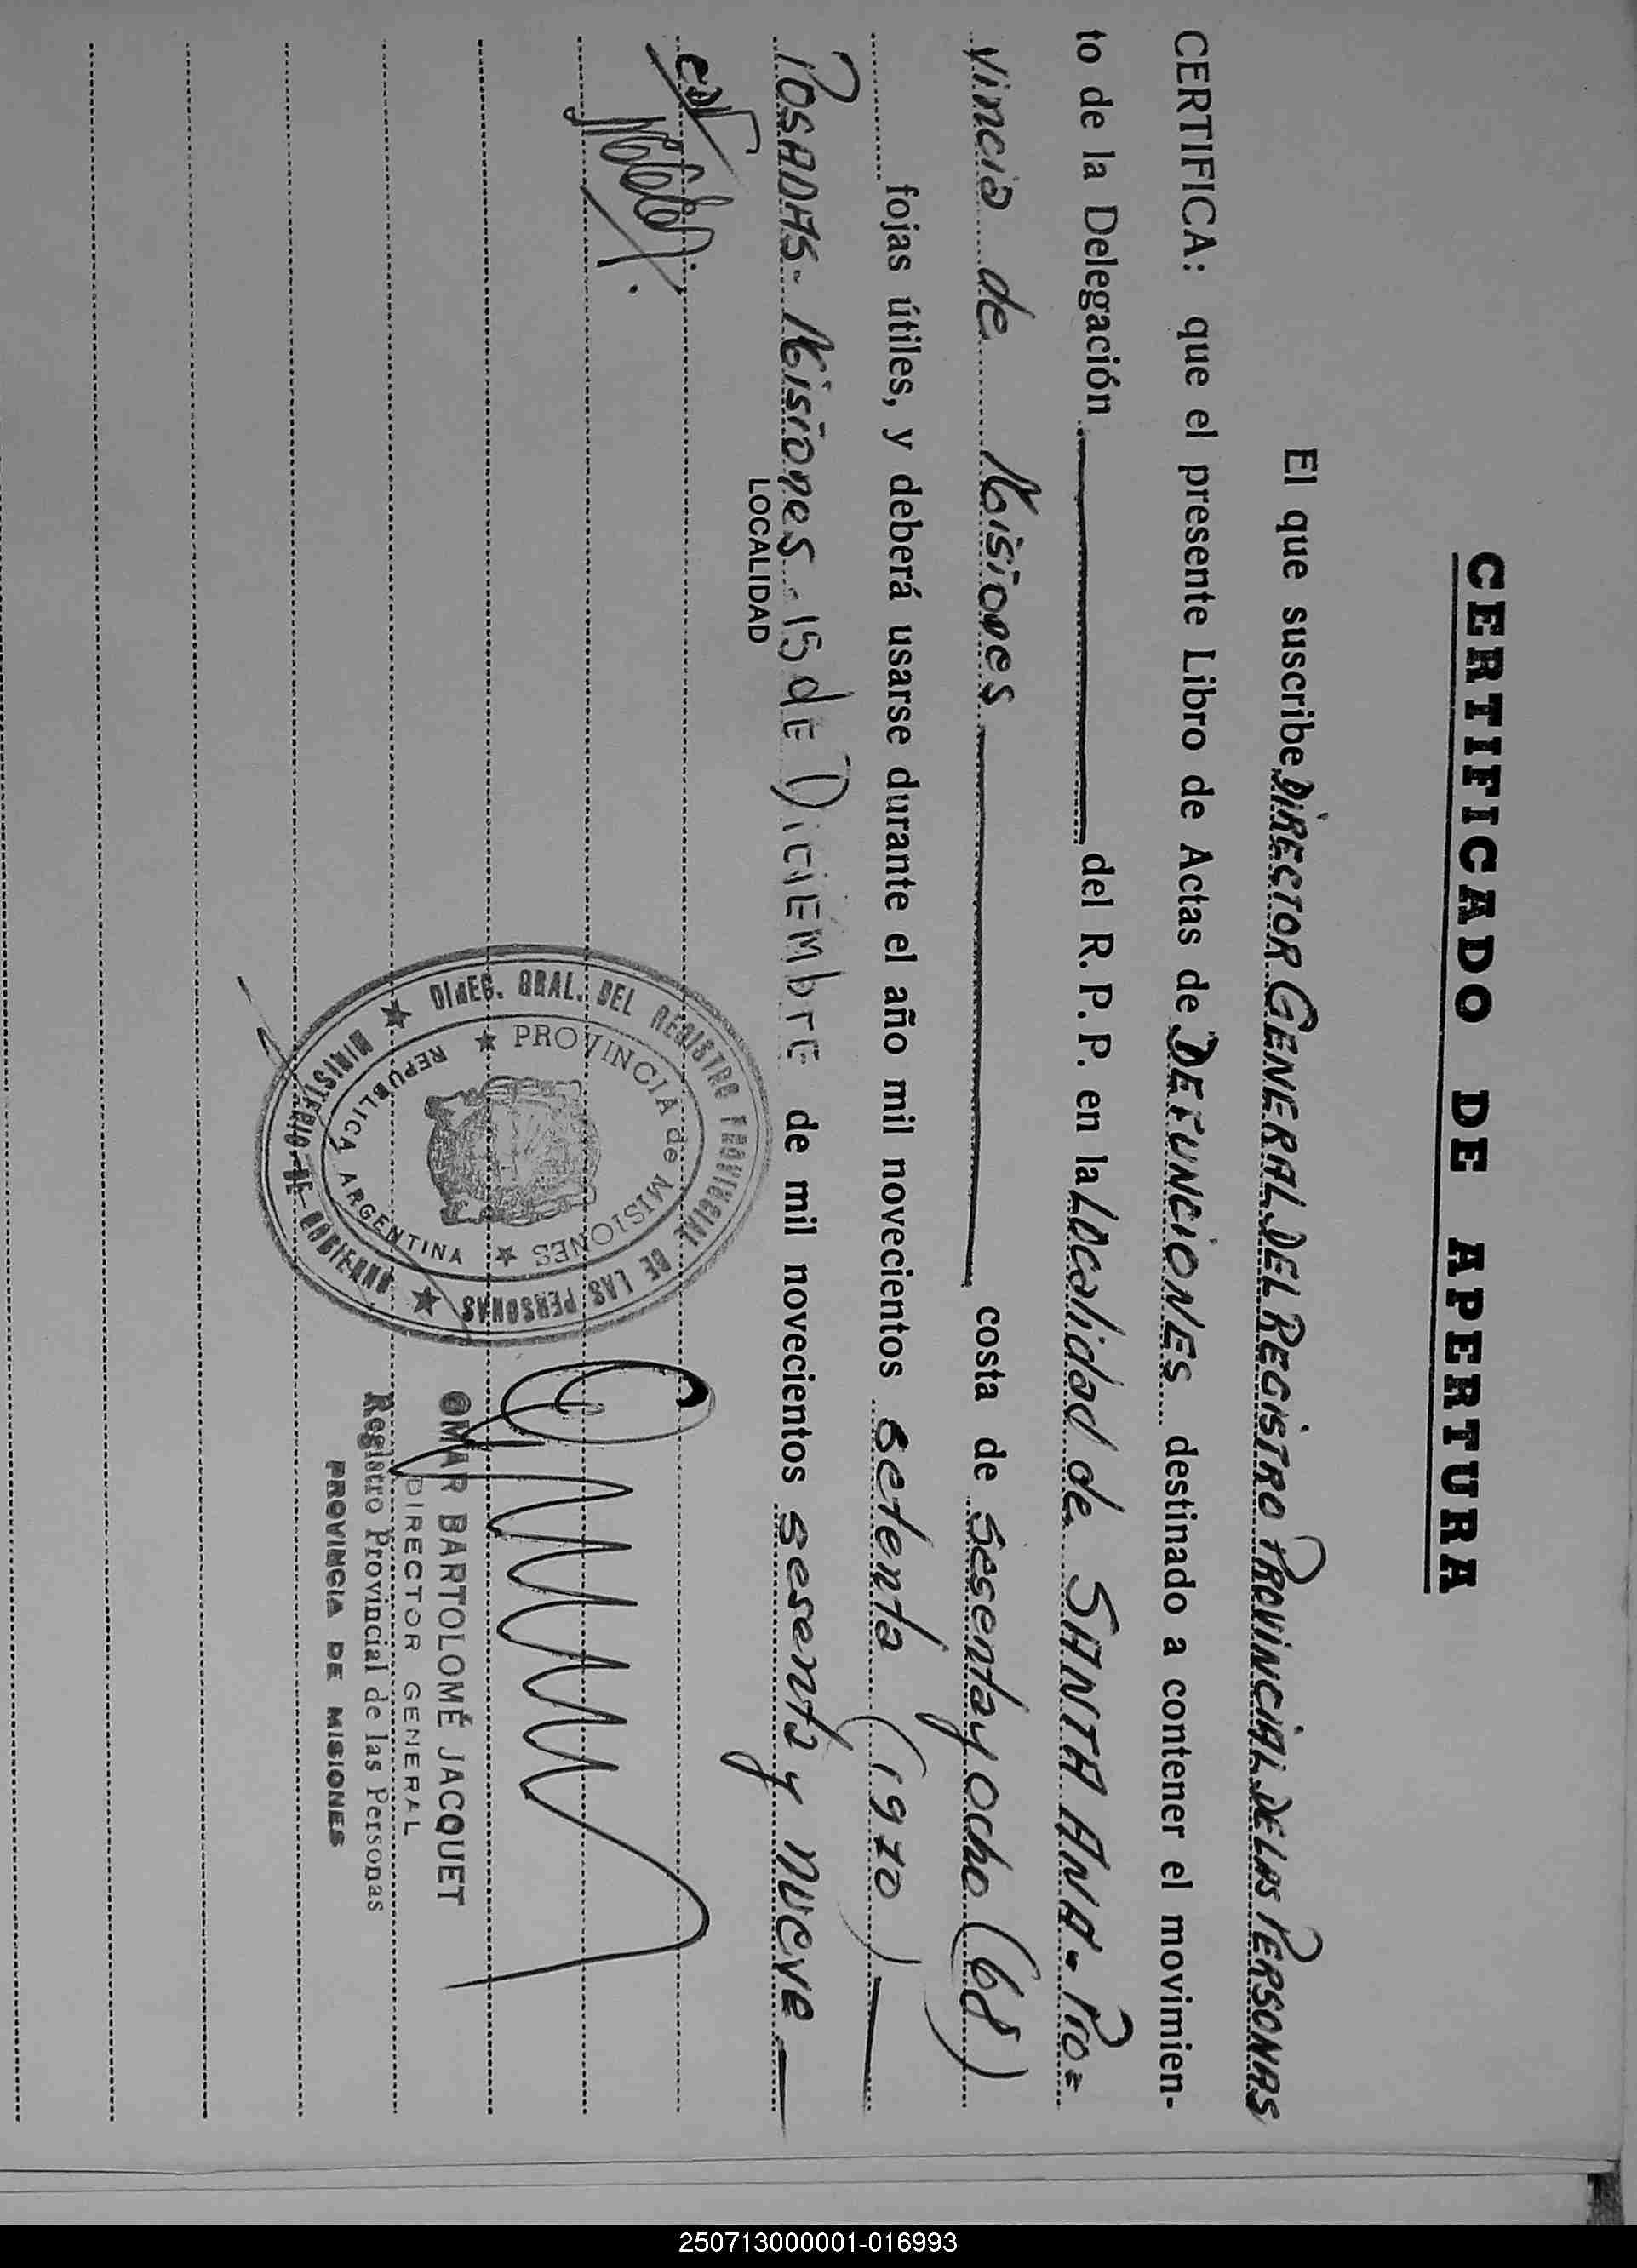 CERTIFICADO DE APERTURA
El que suscribe DIRECTOR GENERAL DEL REGISTRO PROVINCIAL DE LAS PERSONAS
CERTIFICA: que el presente Libro de Actas de DEFUNCIONES destinado a contener el movimien-
to de la Delegación del R. P. P. en la Localidad de SANTA ANA - Pro=
vincia de Misiones costa de sesenta y ocho (68)
fojas útiles, y deberá usarse durante el año mil novecientos setenta (1970)
POSADAS - Misiones - 15 dE DiciEMbrE de mil novecientos sesenta y nueve
LOCALIDAD
DIREC. GRAL. DEL REGISTRO PROVINCIAL DE LAS PERSONAS
MINISTERIO DE GOBIERNO
PROVINCIA de MISIONES
REPUBLICA ARGENTINA
OMAR BARTOLOMÉ JACQUET
DIRECTOR GENERAL
Registro Provincial de las Personas
PROVINCIA DE MISIONES
250713000001-016993